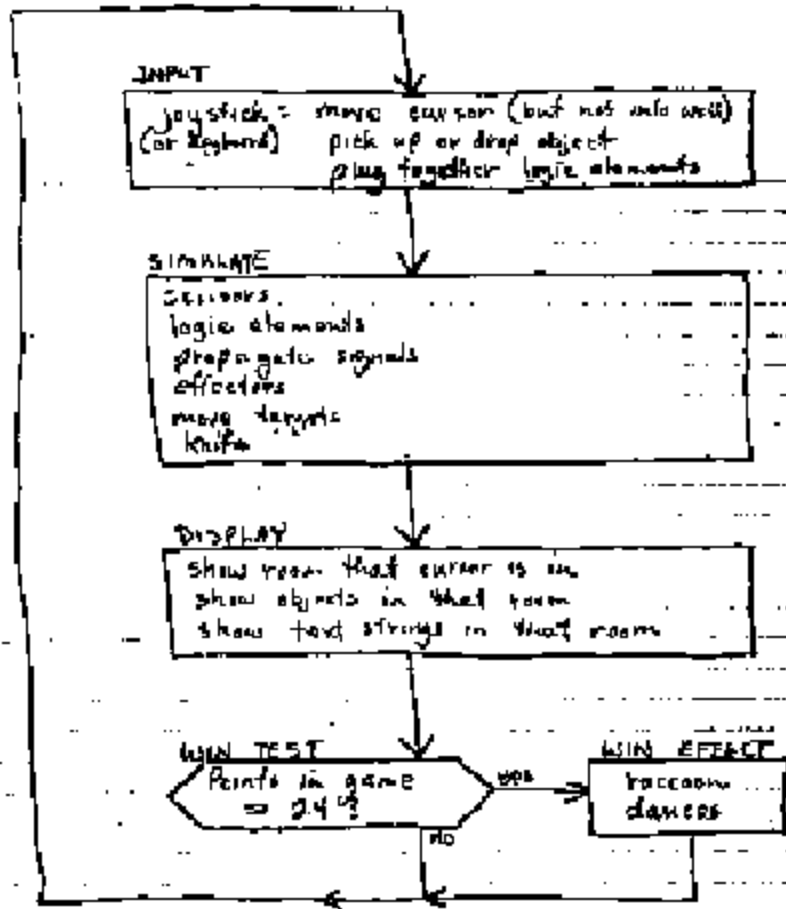 INPUT
joystick = move cursor (but not into wall)
(or keyboard) pick up or drop object
plug together logic elements
SIMULATE
sensors
logic elements
propagate signals
effectors
move targets
knife
DISPLAY
show room that cursor is in
show objects in that room
show text strings in that room
WIN TEST
Points in game
= 24?
yes
no
WIN EFFECT
raccoon
dances